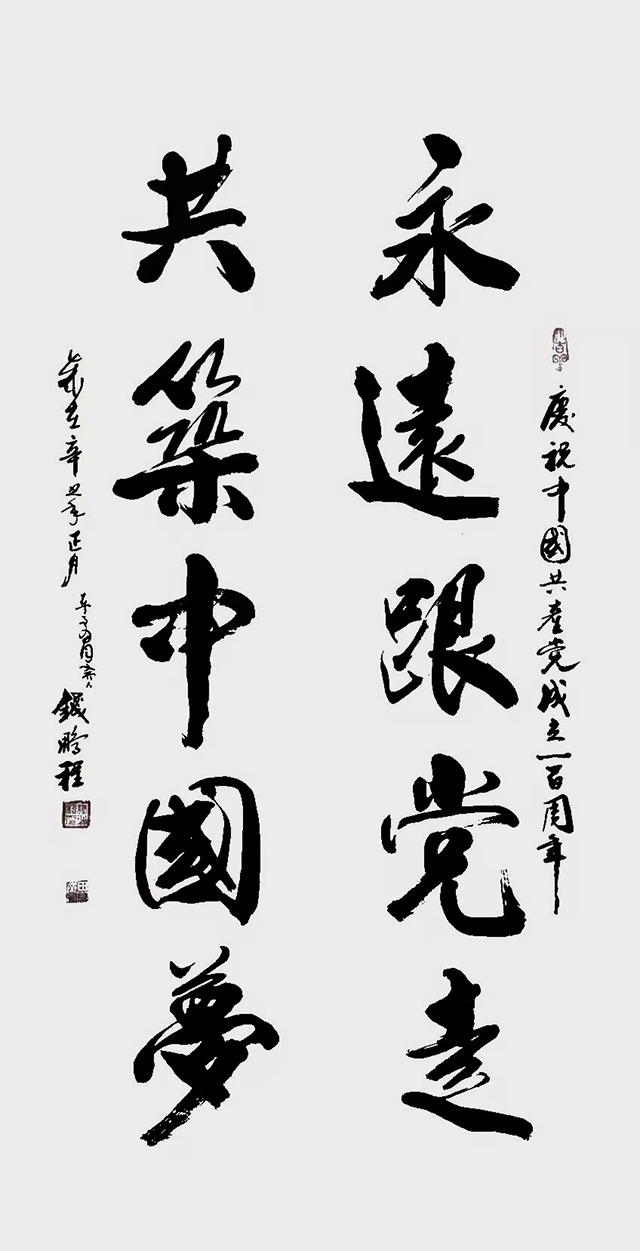 慶祝中國共產党成立一百周年
永遠跟党走
共築中國夢
歲在辛丑年正月
錢鵬程